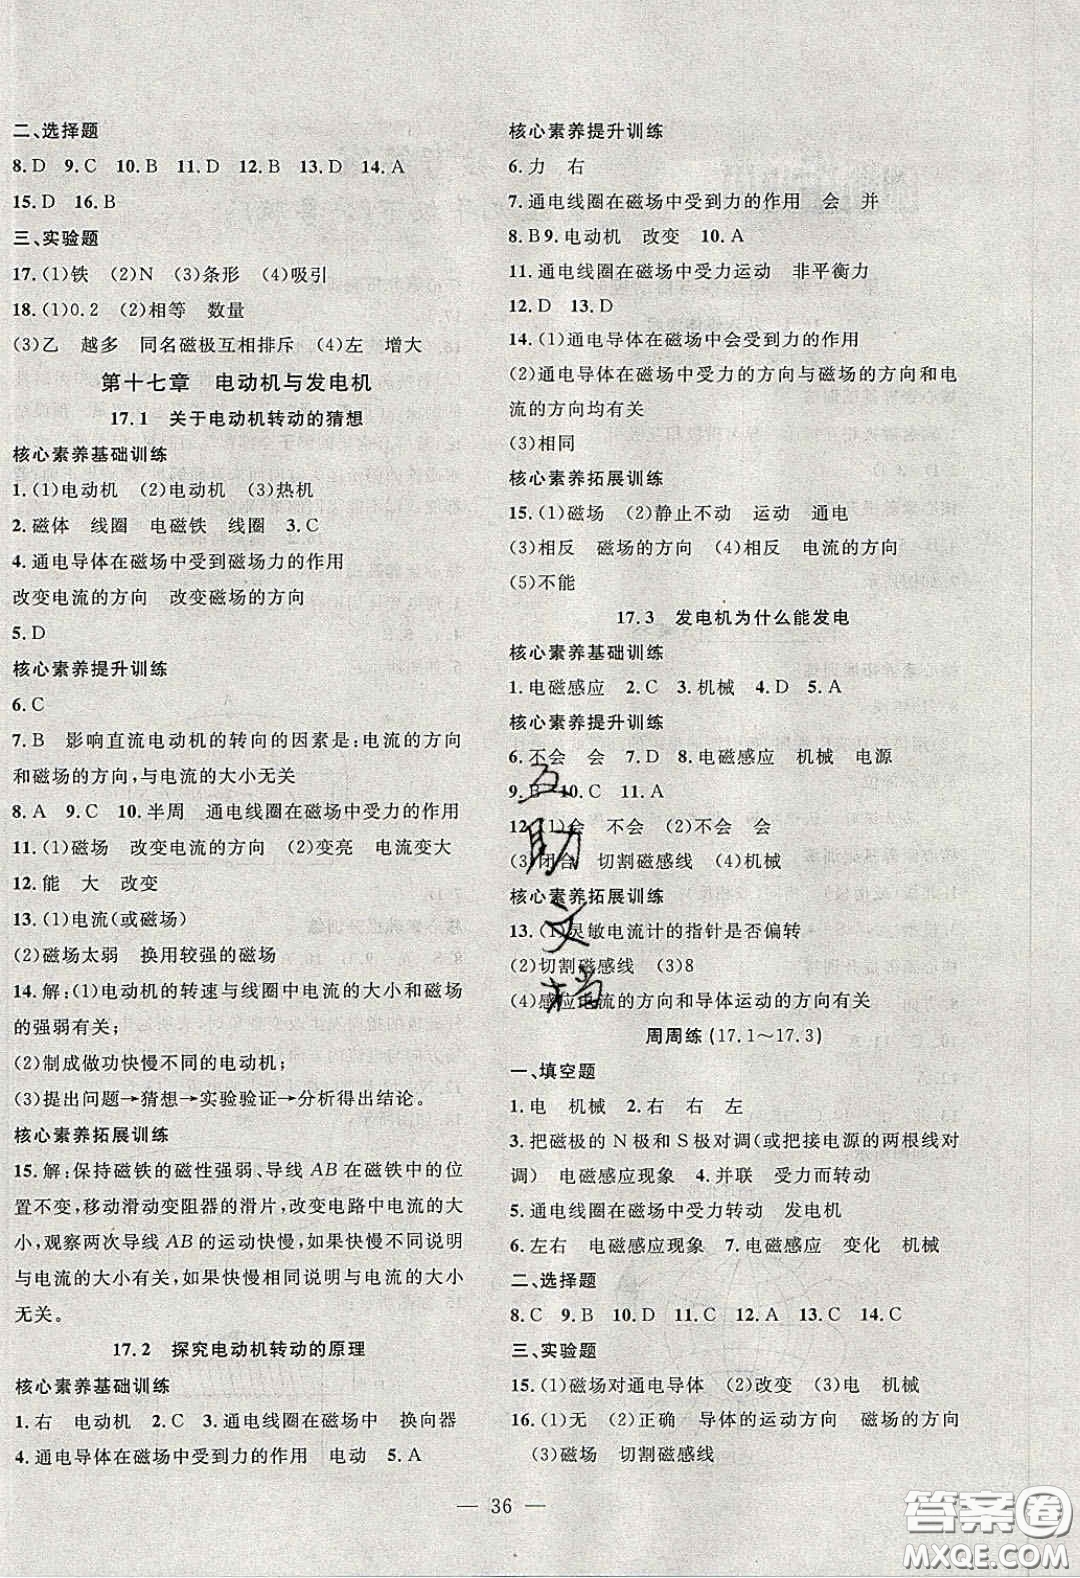 二、选择题
8.D 9.C 10.B 11.D 12.B 13.D 14.A
15.D 16.B
三、实验题
17.(1)铁 (2)N (3)条形 (4)吸引
18.(1)0.2 (2)相等 数量
(3)乙 越多 同名磁极互相排斥 (4)左 增大
第十七章 电动机与发电机
17.1 关于电动机转动的猜想
核心素养基础训练
1.(1)电动机 (2)电动机 (3)热机
2.磁体 线圈 电磁铁 线圈 3.C
4.通电导体在磁场中受到磁场力的作用
改变电流的方向 改变磁场的方向
5.D
核心素养提升训练
6.C
7.B 影响直流电动机的转向的因素是:电流的方向
和磁场的方向,与电流的大小无关
8.A 9.C 10.半周 通电线圈在磁场中受力的作用
11.(1)磁场 改变电流的方向 (2)变亮 电流变大
12.能 大 改变
13.(1)电流(或磁场)
(2)磁场太弱 换用较强的磁场
14.解:(1)电动机的转速与线圈中电流的大小和磁场
的强弱有关;
(2)制成做功快慢不同的电动机;
(3)提出问题→猜想→实验验证→分析得出结论。
核心素养拓展训练
15.解:保持磁铁的磁性强弱、导线AB在磁铁中的位
置不变,移动滑动变阻器的滑片,改变电路中电流的大
小,观察两次导线AB的运动快慢,如果快慢不同说明
与电流的大小有关,如果快慢相同说明与电流的大小
无关。
17.2 探究电动机转动的原理
核心素养基础训练
1.右 电动机 2.C 3.通电线圈在磁场中 换向器
4.通电导体在磁场中受到力的作用 电动 5.A
核心素养提升训练
6.力 右
7.通电线圈在磁场中受到力的作用 会 并
8.B 9.电动机 改变 10.A
11.通电线圈在磁场中受力运动 非平衡力
12.D 13.D
14.(1)通电线圈在磁场中会受到力的作用
(2)通电线圈在磁场中受力的方向与磁场的方向和电
流的方向均有关
(3)相同
核心素养拓展训练
15.(1)磁场 (2)静止不动 运动 通电
(3)相反 磁场的方向 (4)相反 电流的方向
(5)不能
17.3 发电机为什么能发电
核心素养基础训练
1.电磁感应 2.C 3.机械 4.D 5.A
核心素养提升训练
6.不会 会 7.D 8.电磁感应 机械 电源
9.B 10.C 11.A
12.(1)会 不会 (2)不会 会
(3)闭合 切割磁感线 (4)机械
核心素养拓展训练
13.(1)灵敏电流计的指针是否偏转
(2)切割磁感线 (3)8
(4)感应电流的方向和导体运动的方向有关
周周练(17.1～17.3)
一、填空题
1.电 机械 2.右 右 左
3.把磁极的N极和S极对调(或把接电源的两根线对
调) 电磁感应现象 4.并联 受力而转动
5.通电线圈在磁场中受力转动 发电机
6.左右 电磁感应现象 7.电磁感应 变化 机械
二、选择题
8.C 9.B 10.D 11.C 12.A 13.C 14.C
三、实验题
15.(1)磁场对通电导体 (2)改变 (3)电 机械
16.(1)无 (2)正确 导体的运动方向 磁场的方向
(3)磁场 切割磁感线
— 36 —
互助文档
答案圈
MXQE.COM